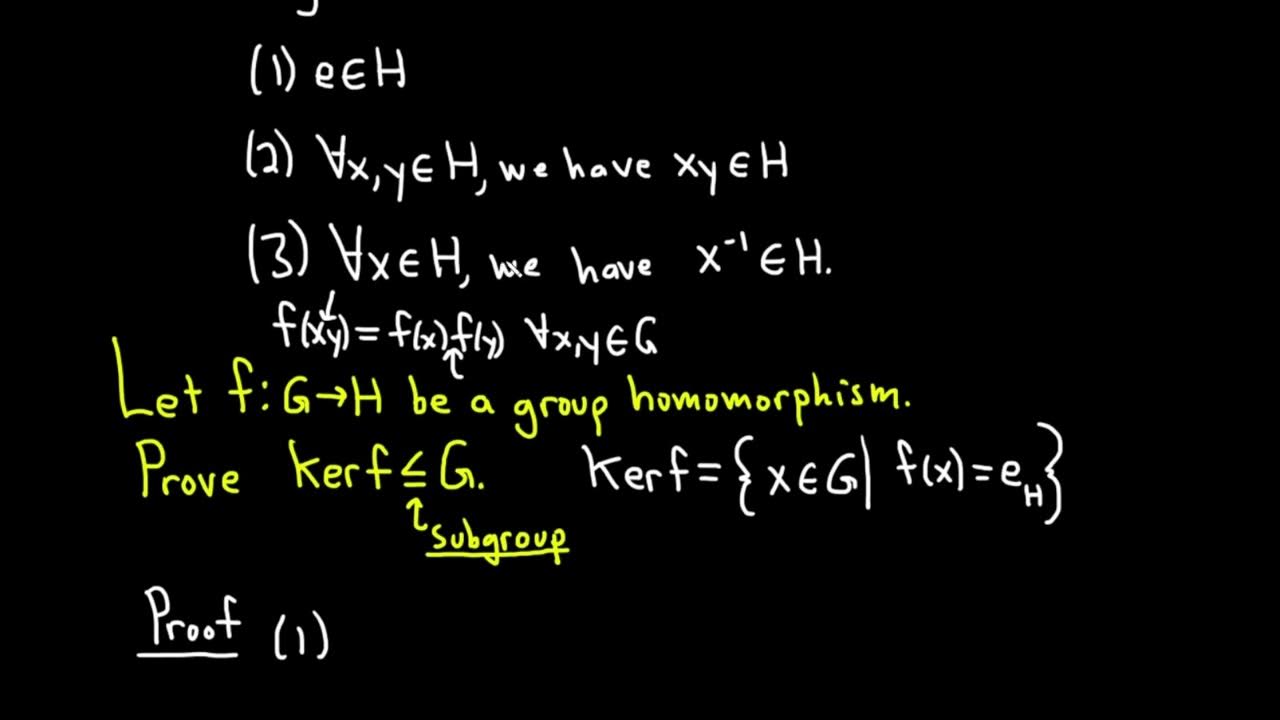 (1) e∈H
(2) ∀x,y∈H, we have xy∈H
(3) ∀x∈H, we have x⁻¹∈H.
f(xy)=f(x)f(y) ∀x,y∈G
Let f:G→H be a group homomorphism.
Prove kerf≤G. Kerf={x∈G| f(x)=e_H}
↑subgroup
Proof (1)